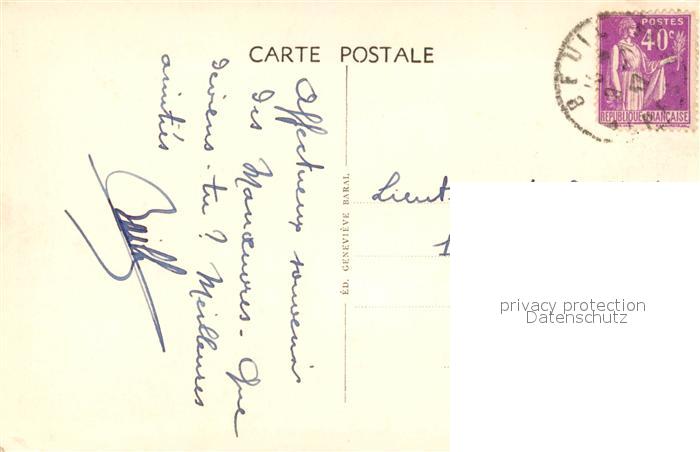 CARTE POSTALE
POSTES
40c
RÉPUBLIQUE FRANÇAISE
Affectueux souvenir
des Manœuvres. Que
deviens-tu ? Meilleures
amitiés
ÉD. GENEVIÈVE BARAL
Lieut.
1
privacy protection
Datenschutz